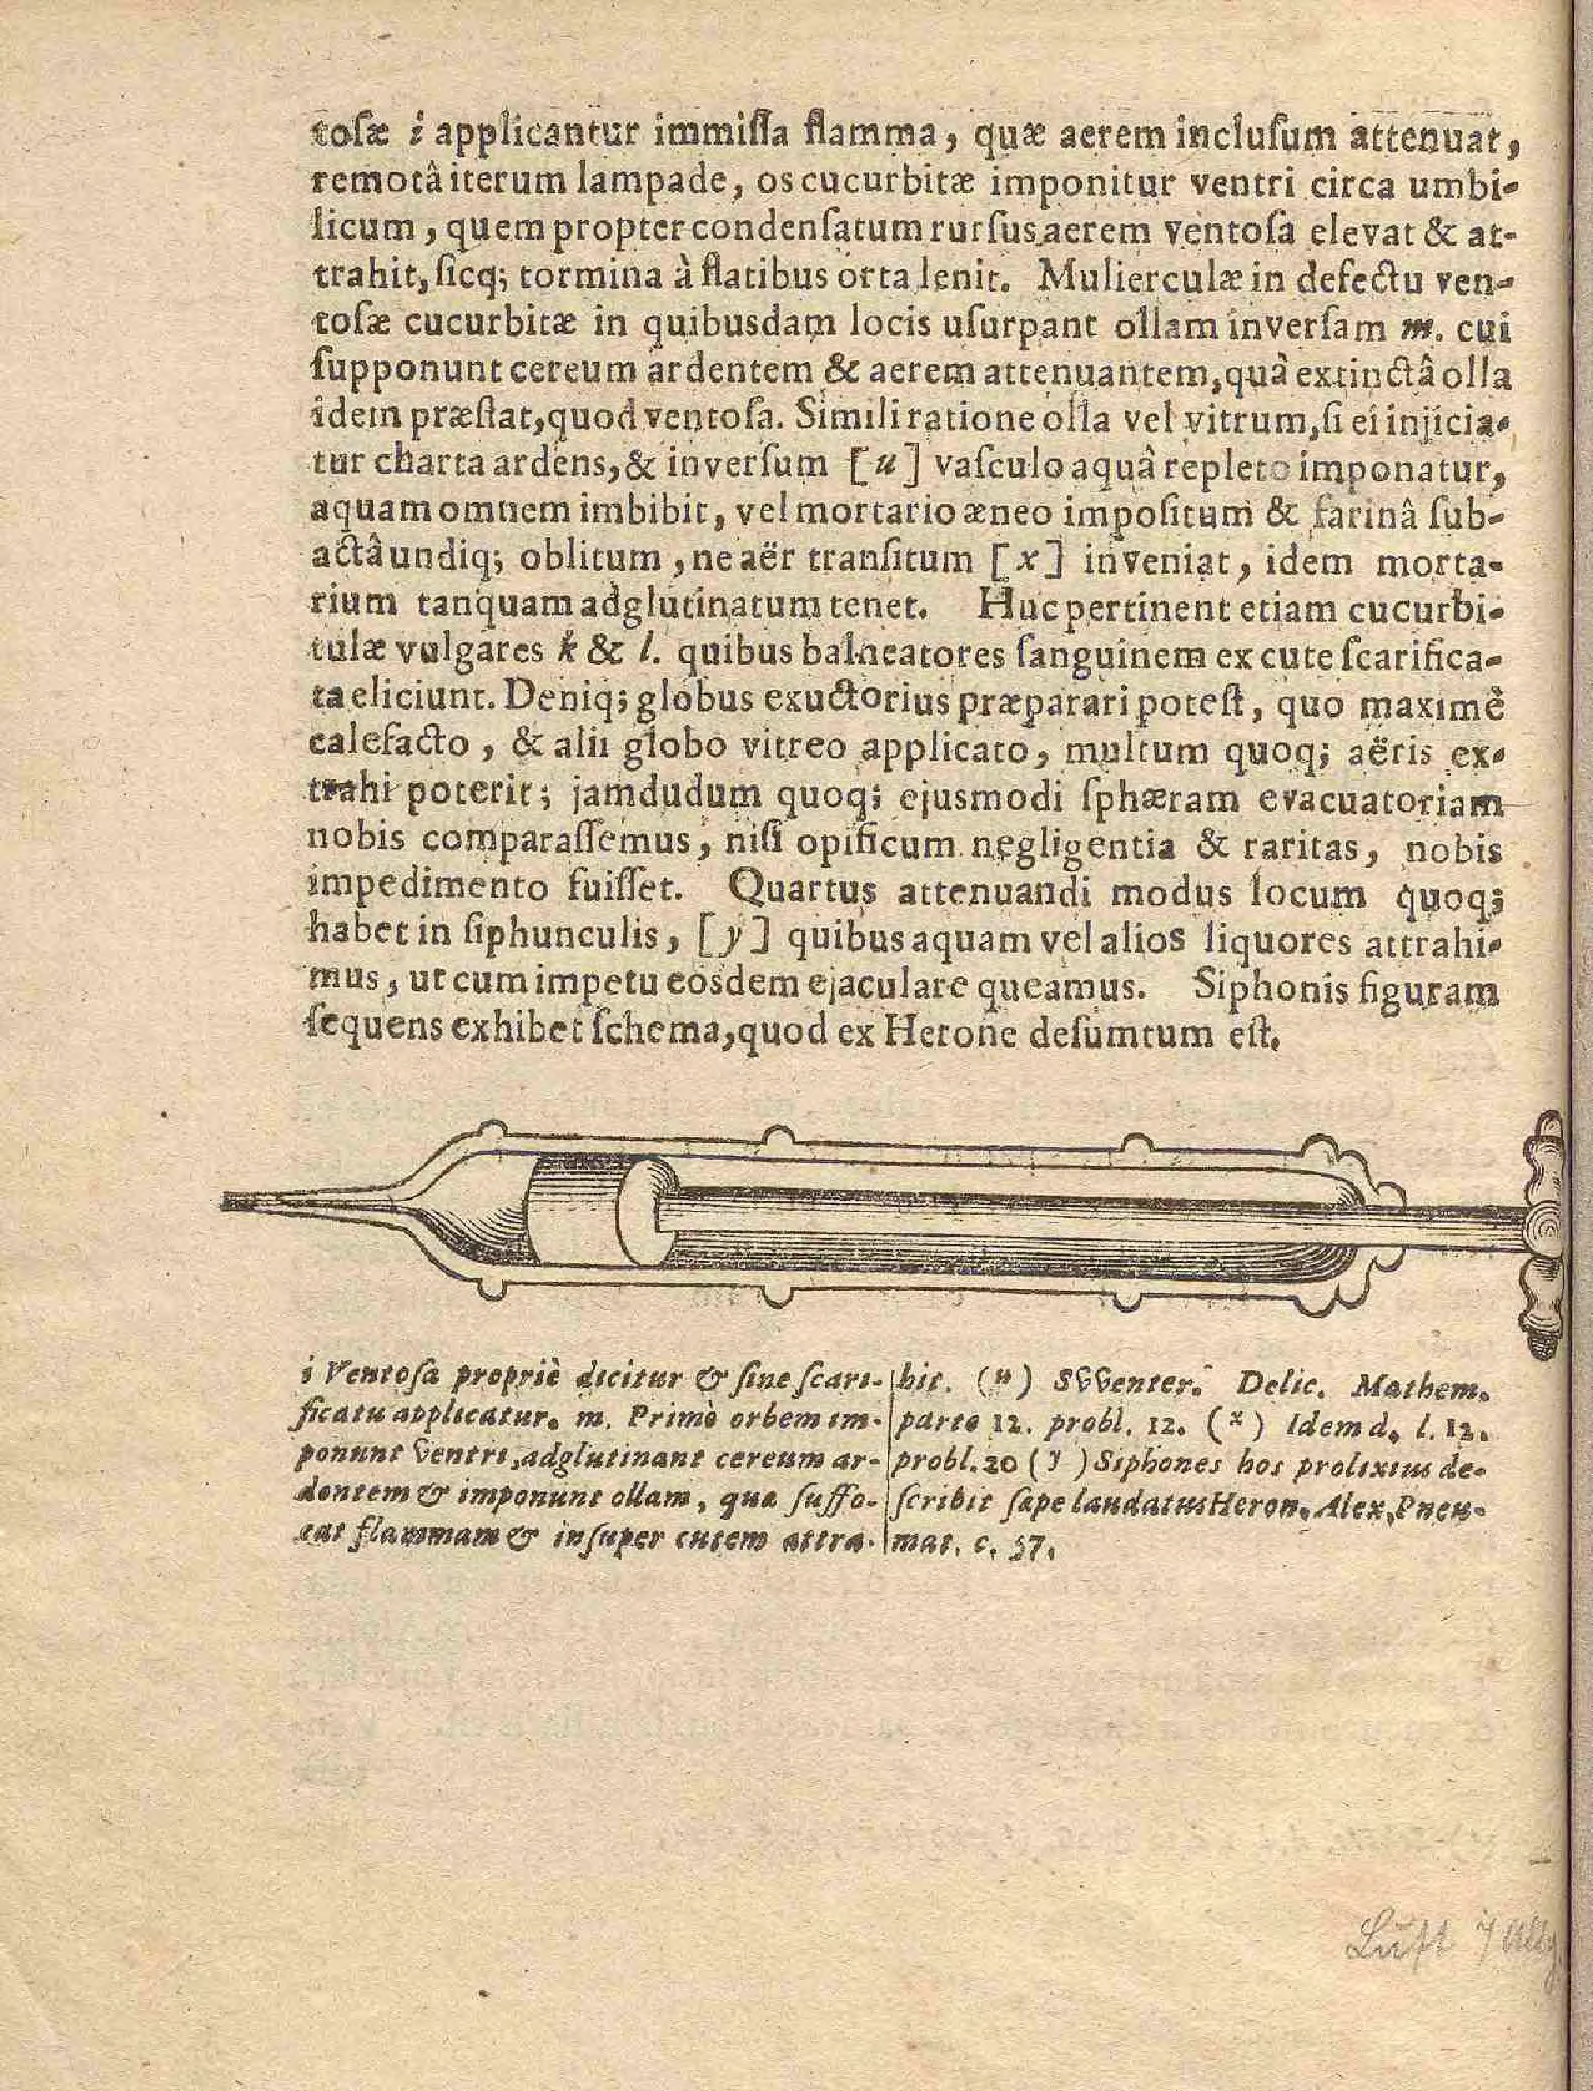 toſæ i applicantur immiſſa flamma, quæ aerem incluſum attenuat,
remotâ iterum lampade, os cucurbitæ imponitur ventri circa umbi-
licum, quem propter condenſatum rurſus aerem ventoſa elevat & at-
trahit, ſicq; tormina à flatibus orta lenit. Mulierculæ in defectu ven-
toſæ cucurbitæ in quibusdam locis uſurpant ollam inverſam m. cui
ſupponunt cereum ardentem & aerem attenuantem, quâ extinctâ olla
idem præſtat, quod ventoſa. Simili ratione olla vel vitrum, ſi ei injicia-
tur charta ardens, & inverſum [u] vaſculo aquâ repleto imponatur,
aquam omnem imbibit, vel mortario æneo impoſitum & farinâ ſub-
actâ undiq; oblitum, ne aër tranſitum [x] inveniat, idem morta-
rium tanquam adglutinatum tenet. Huc pertinent etiam cucurbi-
tulæ vulgares k & l. quibus balneatores ſanguinem ex cute ſcarifica-
ta eliciunt. Deniq; globus exuctorius præparari poteſt, quo maximè
calefacto, & alii globo vitreo applicato, multum quoq; aëris ex-
trahi poterit; jamdudum quoq; ejusmodi ſphæram evacuatoriam
nobis comparaſſemus, niſi opificum negligentia & raritas, nobis
impedimento fuiſſet. Quartus attenuandi modus locum quoq;
habet in ſiphunculis, [y] quibus aquam vel alios liquores attrahi-
mus, ut cum impetu eosdem ejaculare queamus. Siphonis figuram
ſequens exhibet ſchema, quod ex Herone deſumtum eſt.
i Ventoſa propriè dicitur & ſine ſcari-
ficatu applicatur. m. Primò orbem im-
ponunt ventri, adglutinant cereum ar-
dentem & imponunt ollam, quæ ſuffo-
cat flammam & inſuper cutem attra-
hit. (u) SVVenter. Delic. Mathem.
parte 12. probl. 12. (x) Idem d. l. 12.
probl. 20 (y) Siphones hos prolixius de-
ſcribit ſæpe laudatus Heron. Alex. Pneu-
mat. c. 57.
Luft